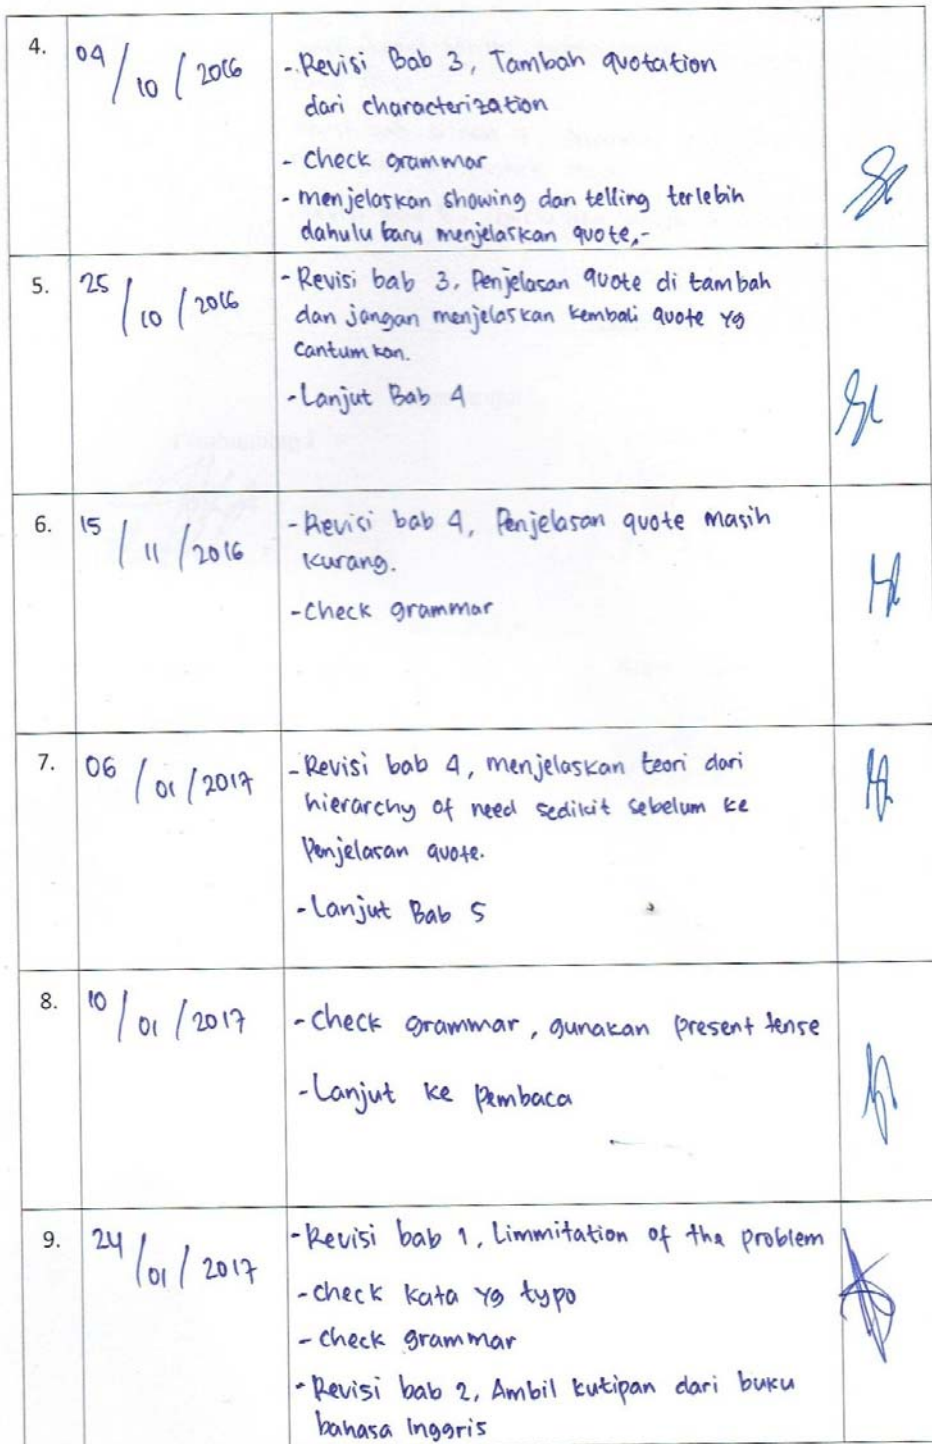 4. 04/10/2016 - Revisi Bab 3, Tambah quotation
dari characterization
- Check grammar
- menjelaskan showing dan telling terlebih
dahulu baru menjelaskan quote,-
5. 25/10/2016 - Revisi bab 3. Penjelasan quote di tambah
dan jangan menjelaskan kembali quote yg
Cantumkan.
- Lanjut Bab 4
6. 15/11/2016 - Revisi bab 4, Penjelasan quote masih
kurang.
- Check grammar
7. 06/01/2017 - Revisi bab 4, menjelaskan teori dari
hierarchy of need sedikit sebelum ke
Penjelasan quote.
- Lanjut Bab 5
8. 10/01/2017 - Check grammar, gunakan Present tense
- Lanjut ke Pembaca
9. 24/01/2017 - Revisi bab 1, Limmitation of the problem
- check kata yg typo
- check grammar
- Revisi bab 2, Ambil kutipan dari buku
bahasa Inggris